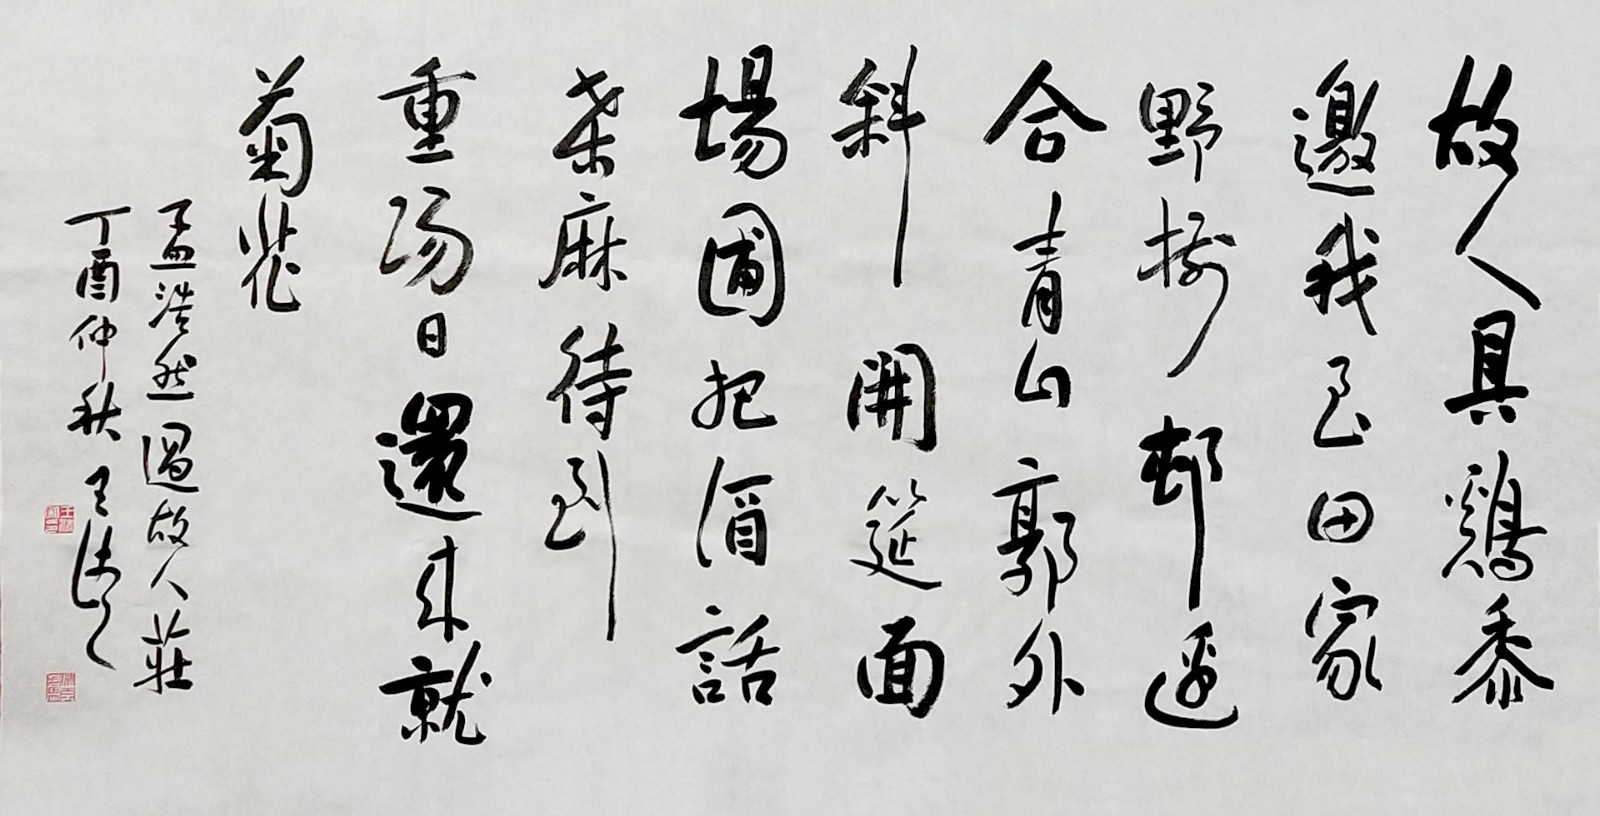 故人具鷄黍
邀我至田家
野樹邨邊
合青山郭外
斜開筵面
場圃把酒話
桑麻待到
重陽日還來就
菊花
孟浩然過故人莊
丁酉仲秋王